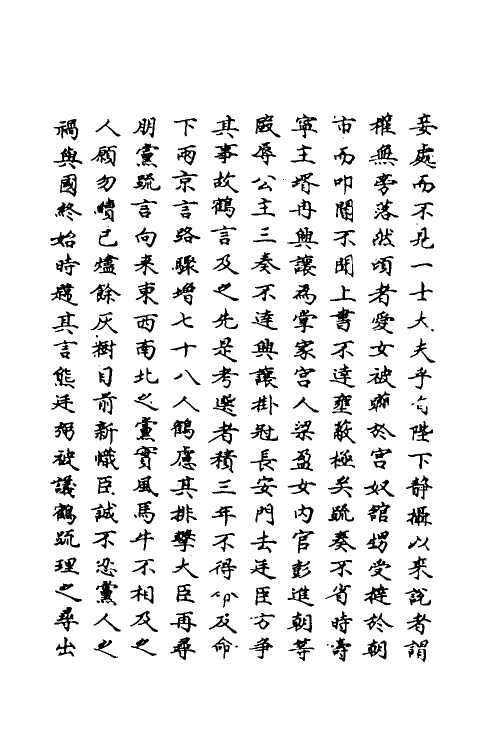 妾處而不見一士大夫乎自陛下靜攝以來說者謂
權無旁落然頃者愛女被躪於宮奴館甥受撻於朝
市而叩閽不聞上書不達壅蔽極矣疏奏不省時壽
寧主壻冉興讓為掌家宮人梁盈女內官彭進朝等
毆辱公主三奏不達興讓掛冠長安門去廷臣方爭
其事故鶴言及之先是考選者積三年不得命及命
下兩京言路驟增七十八人鶴慮其排擊大臣再尋
朋黨疏言向來東西南北之黨實風馬牛不相及之
人願勿噴已燼餘灰樹目前新幟臣誠不忍黨人之
禍與國終始時韙其言熊廷弼被議鶴疏理之尋出